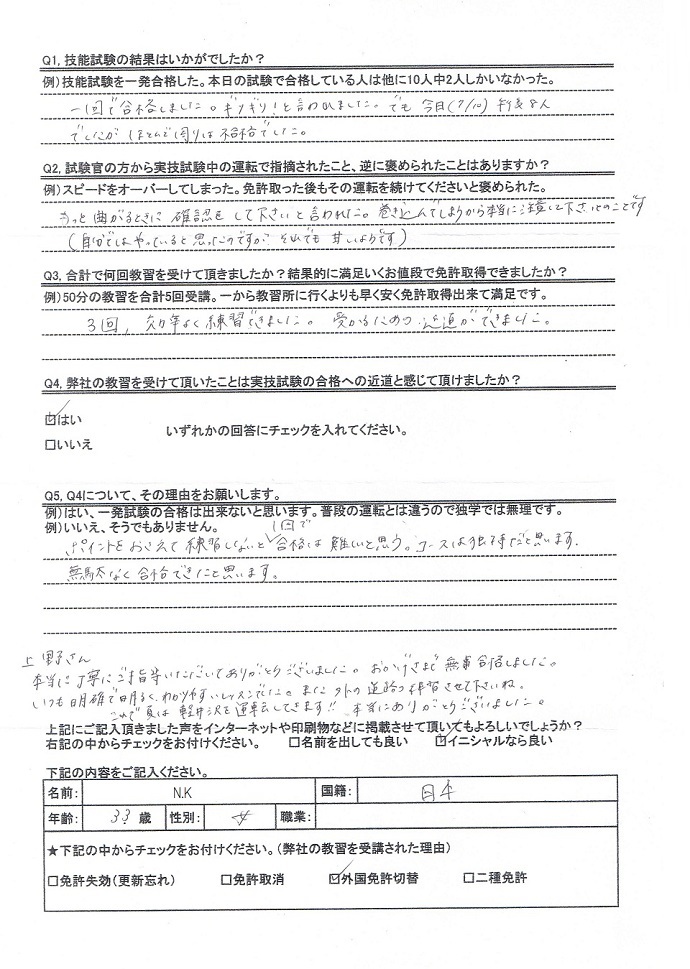 Q1, 技能試験の結果はいかがでしたか？
例）技能試験を一発合格した。本日の試験で合格している人は他に10人中2人しかいなかった。
一回で合格しました。ギリギリ！と言われました。でも 今日(7/10) 8人
でしたが ほとんど周りは不合格でした。
Q2, 試験官の方から実技試験中の運転で指摘されたこと、逆に褒められたことはありますか？
例）スピードをオーバーしてしまった。免許取った後もその運転を続けてくださいと褒められた。
もっと曲がるときに 確認をして下さいと言われた。巻き込んでしまうから本当に注意して下さいとのことです
（自分ではやっていると思ったのですが、それでも 甘いようです）
Q3, 合計で何回教習を受けて頂きましたか？結果的に満足いくお値段で免許取得できましたか？
例）50分の教習を合計5回受講。一から教習所に行くよりも早く安く免許取得出来て満足です。
3回, 効率よく練習できました。 受かるための 近道ができました。
Q4, 弊社の教習を受けて頂いたことは実技試験の合格への近道と感じて頂けましたか？
☑はい
いずれかの回答にチェックを入れてください。
□いいえ
Q5, Q4について、その理由をお願いします。
例）はい、一発試験の合格は出来ないと思います。普段の運転とは違うので独学では無理です。
例）いいえ、そうでもありません。
ポイントをおさえて練習しないと 1回で 合格は 難しいと思う。コースは独特だと思います.
無駄なく 合格できたと思います。
上野さん
本当に丁寧にご指導いただいてありがとうございました。おかげさまで 無事合格しました。
いつも明確で明るく、わかりやすいレッスンでした。また 外の道路も 練習させて下さいね。
これで夏は 軽井沢を運転してきます!! 本当にありがとうございました。
上記にご記入頂きました声をインターネットや印刷物などに掲載させて頂いてもよろしいでしょうか？
右記の中からチェックをお付けください。 □名前を出しても良い ☑イニシャルなら良い
下記の内容をご記入ください。
名前： N.K 国籍： 日本
年齢： 33 歳 性別： 女 職業：
★下記の中からチェックをお付けください。（弊社の教習を受講された理由）
□免許失効（更新忘れ） □免許取消 ☑外国免許切替 □二種免許